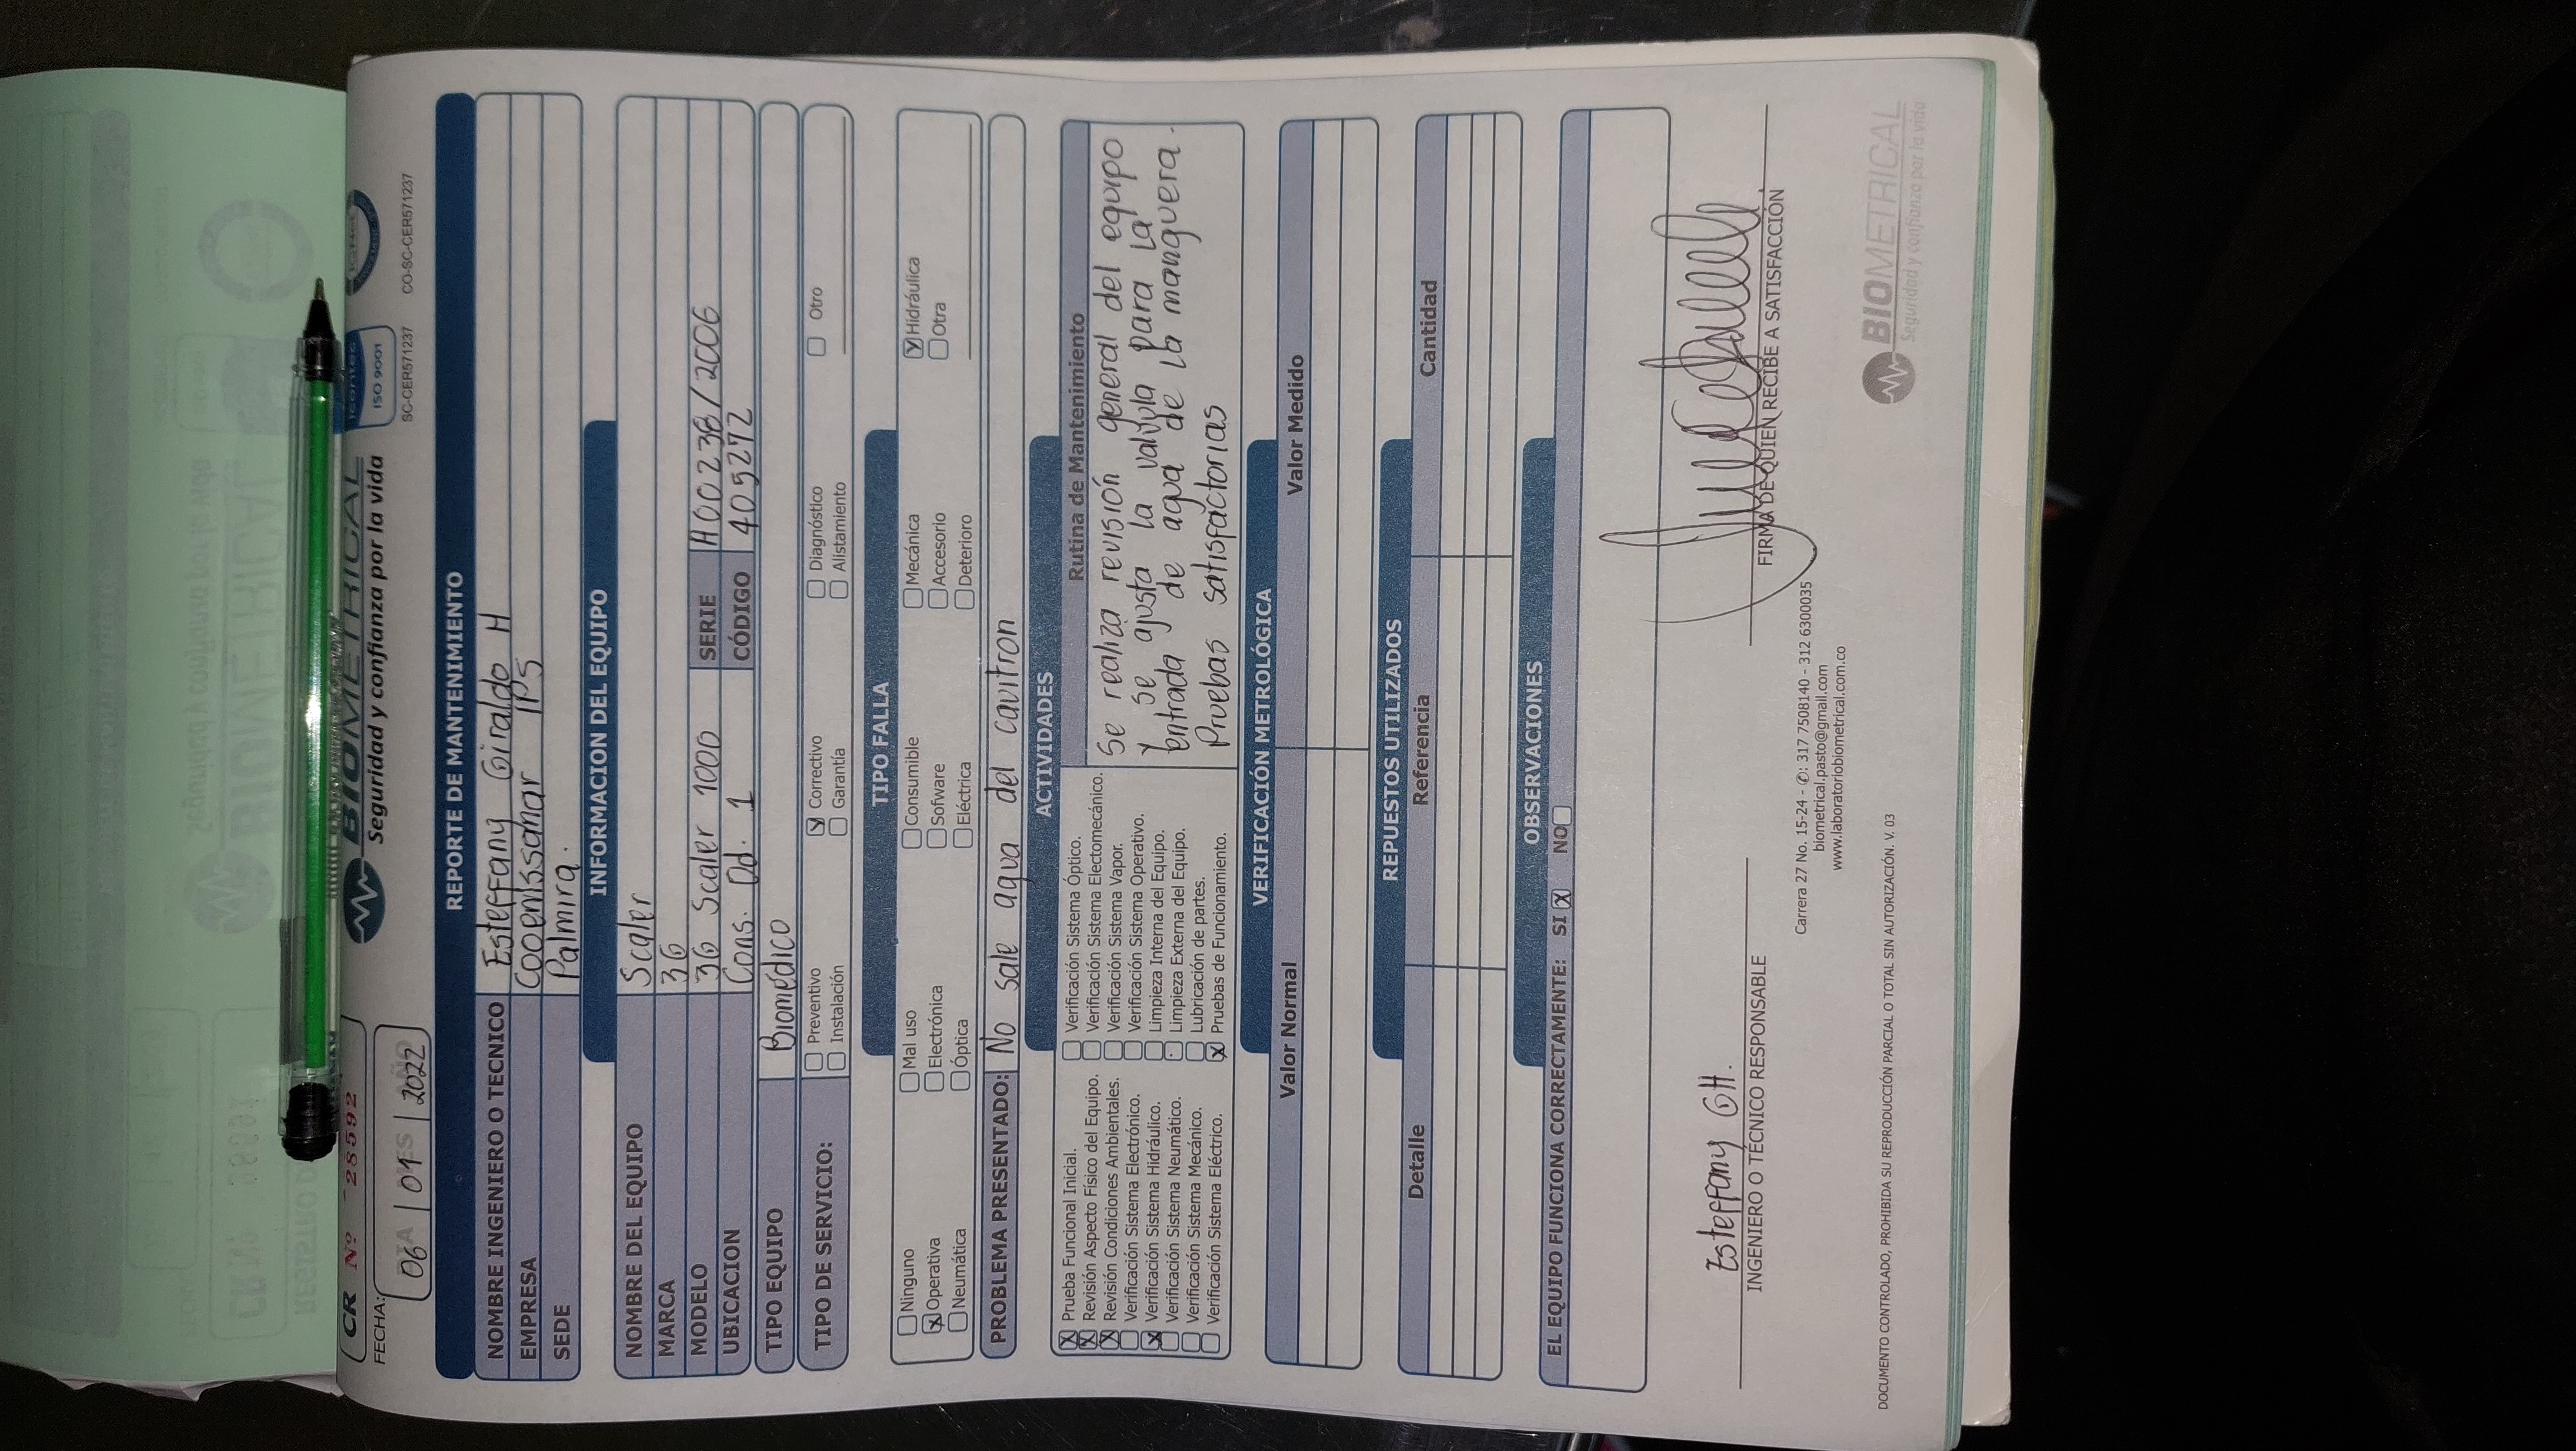 CR Nº 28592
BIOMETRICAL
Seguridad y confianza por la vida
icontec
ISO 9001
SC-CER571237
CO-SC-CER571237
FECHA:
DIA MES AÑO
06 | 01 | 2022
REPORTE DE MANTENIMIENTO
NOMBRE INGENIERO O TECNICO Esteffany Giraldo H
EMPRESA Cooemssanar IPS
SEDE Palmira.
INFORMACION DEL EQUIPO
NOMBRE DEL EQUIPO Scaler
MARCA 3G
MODELO 3G Scaler 1000 SERIE A00238/2006
UBICACION Cons. Od. 1 CÓDIGO 405272
TIPO EQUIPO Biomédico
TIPO DE SERVICIO: Preventivo Correctivo Diagnóstico Otro
Instalación Garantía Alistamiento
TIPO FALLA
Ninguno Mal uso Consumible Mecánica Hidráulica
Operativa Electrónica Sofware Accesorio Otra
Neumática Óptica Eléctrica Deterioro
PROBLEMA PRESENTADO: No sale agua del cavitron
ACTIVIDADES
Prueba Funcional Inicial.
Revisión Aspecto Físico del Equipo.
Revisión Condiciones Ambientales.
Verificación Sistema Electrónico.
Verificación Sistema Hidráulico.
Verificación Sistema Neumático.
Verificación Sistema Mecánico.
Verificación Sistema Eléctrico.
Verificación Sistema Óptico.
Verificación Sistema Electomecánico.
Verificación Sistema Vapor.
Verificación Sistema Operativo.
Limpieza Interna del Equipo.
Limpieza Externa del Equipo.
Lubricación de partes.
Pruebas de Funcionamiento.
Rutina de Mantenimiento
Se realiza revisión general del equipo
y se ajusta la valvula para la
entrada de agua de la manguera.
Pruebas satisfactorias
VERIFICACIÓN METROLÓGICA
Valor Normal Valor Medido
REPUESTOS UTILIZADOS
Detalle Referencia Cantidad
OBSERVACIONES
EL EQUIPO FUNCIONA CORRECTAMENTE: SI X NO
Esteffany GH.
INGENIERO O TÉCNICO RESPONSABLE
FIRMA DE QUIEN RECIBE A SATISFACCIÓN
Carrera 27 No. 15-24 - ✆: 317 7508140 - 312 6300035
biometrical.pasto@gmail.com
www.laboratoriobiometrical.com.co
DOCUMENTO CONTROLADO, PROHIBIDA SU REPRODUCCIÓN PARCIAL O TOTAL SIN AUTORIZACIÓN. V. 03
BIOMETRICAL
Seguridad y confianza por la vida